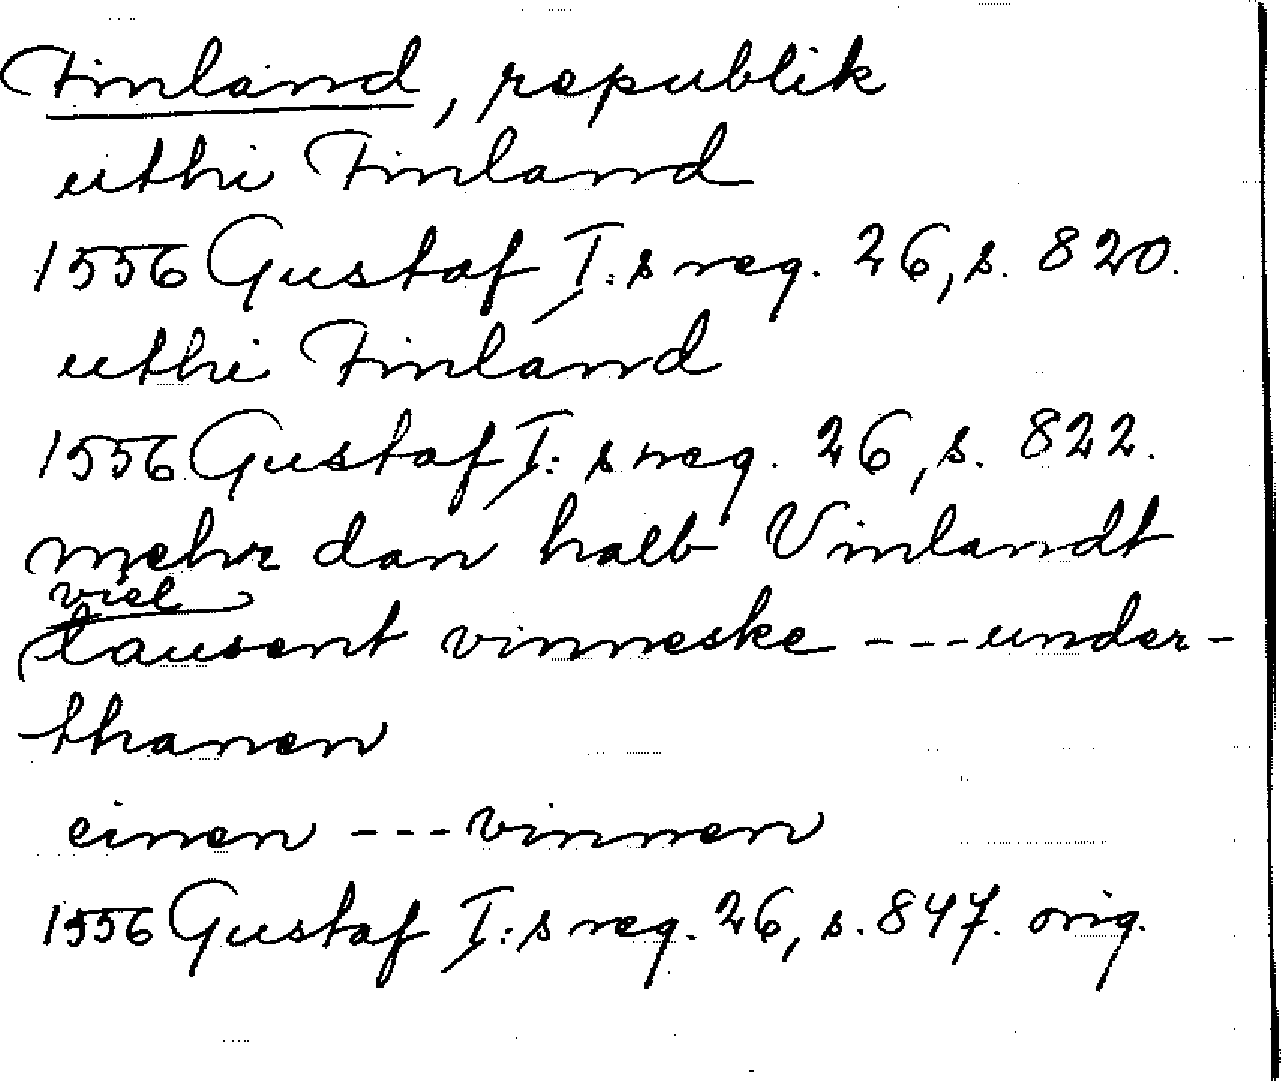 Finland, republik
uthi Finland
1556 Gustaf I:s reg. 26, s. 820.
uthi Finland
1556 Gustaf I:s reg. 26, s. 822.
mehr dan halb Vinlandt
viel
tausent vinneske ---under-
thanen
einen --- vinnen
1556 Gustaf I:s reg. 26, s. 847. orig.